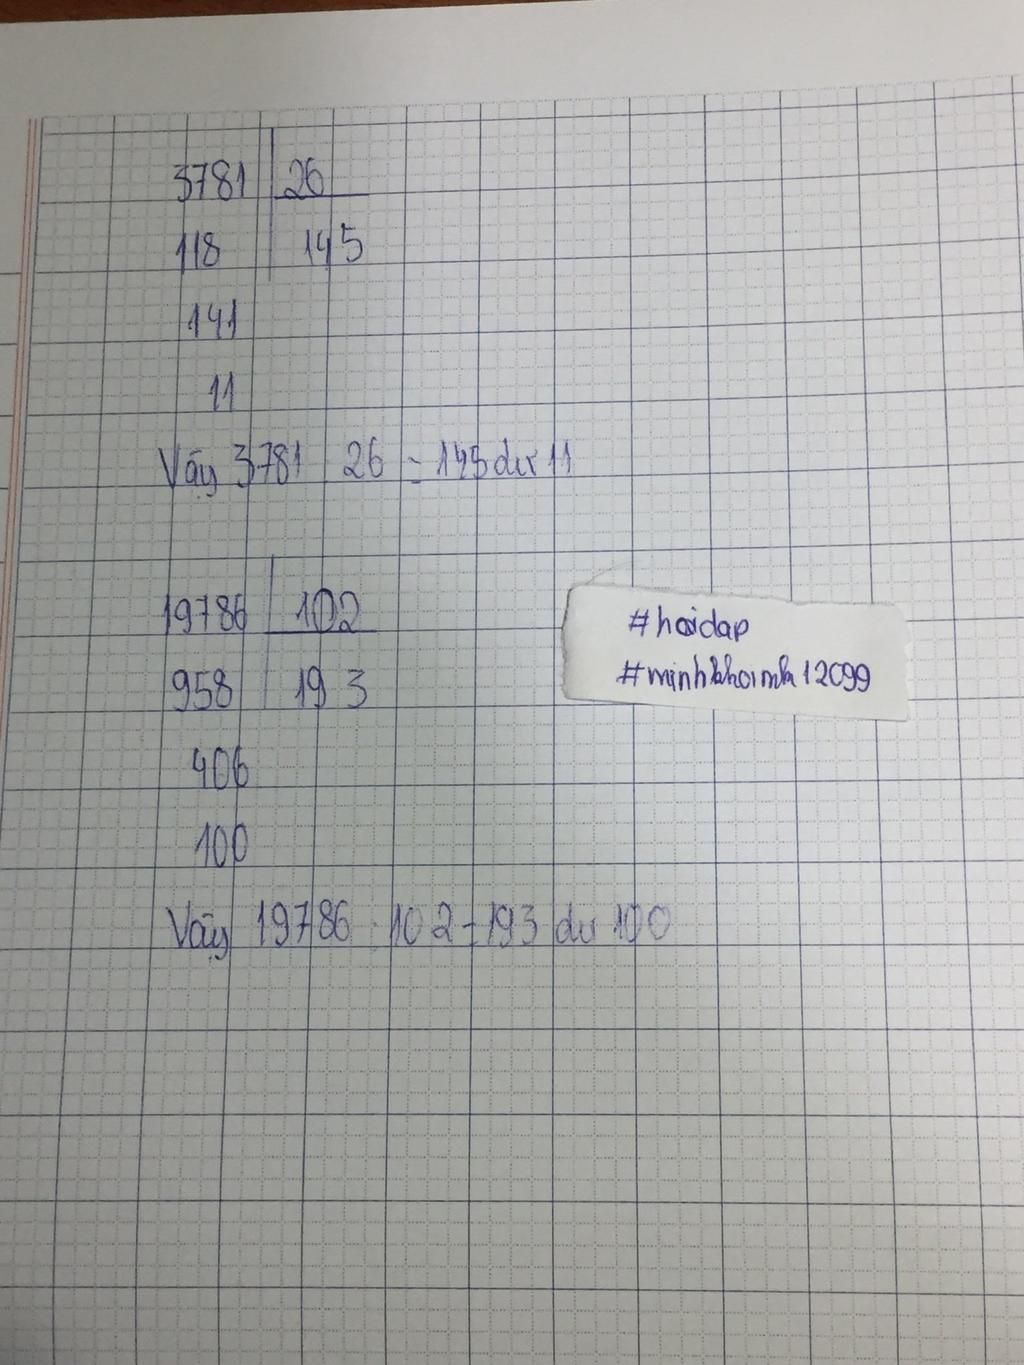 3781 26
118 145
141
11
Vậy 3781 : 26 = 145 dư 11
19786 102
958 193
406
100
Vậy 19786 : 102 = 193 dư 100
#hoidap
#minhkhoimk12099